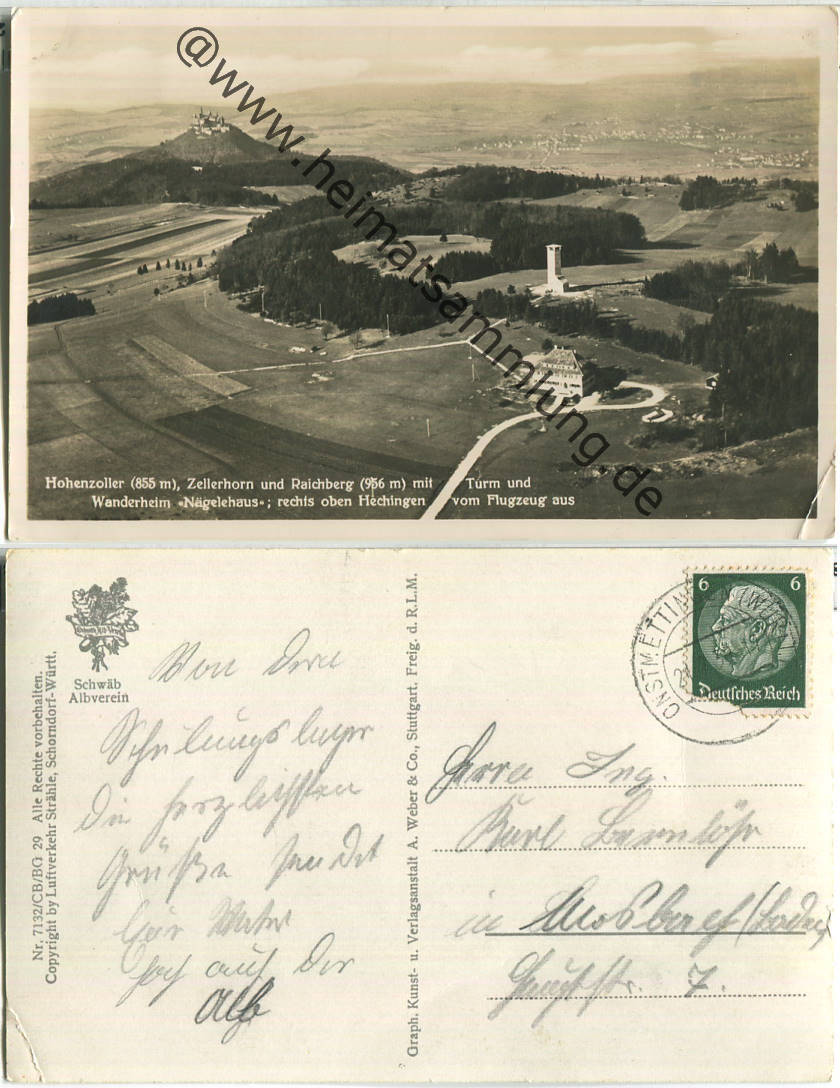 @www.heimatsammlung.de
Hohenzoller (855 m), Zellerhorn und Raichberg (956 m) mit Turm und
Wanderheim »Nägelehaus«; rechts oben Hechingen vom Flugzeug aus
Schwäb
Albverein
Nr. 7132/CB/BG 29 Alle Rechte vorbehalten.
Copyright by Luftverkehr Strähle, Schorndorf-Württ.
Graph. Kunst- u. Verlagsanstalt A. Weber & Co., Stuttgart. Freig. d. R.L.M.
6 6
Deutsches Reich
ONSTMETTINGEN
Von dem
Schulungslager
die herzlichsten
Grüße sendet
Euer Vater
hoch auf der
Alb
Herrn Ing.
Karl
in Mosbach (Baden)
Hauptstr. 7.